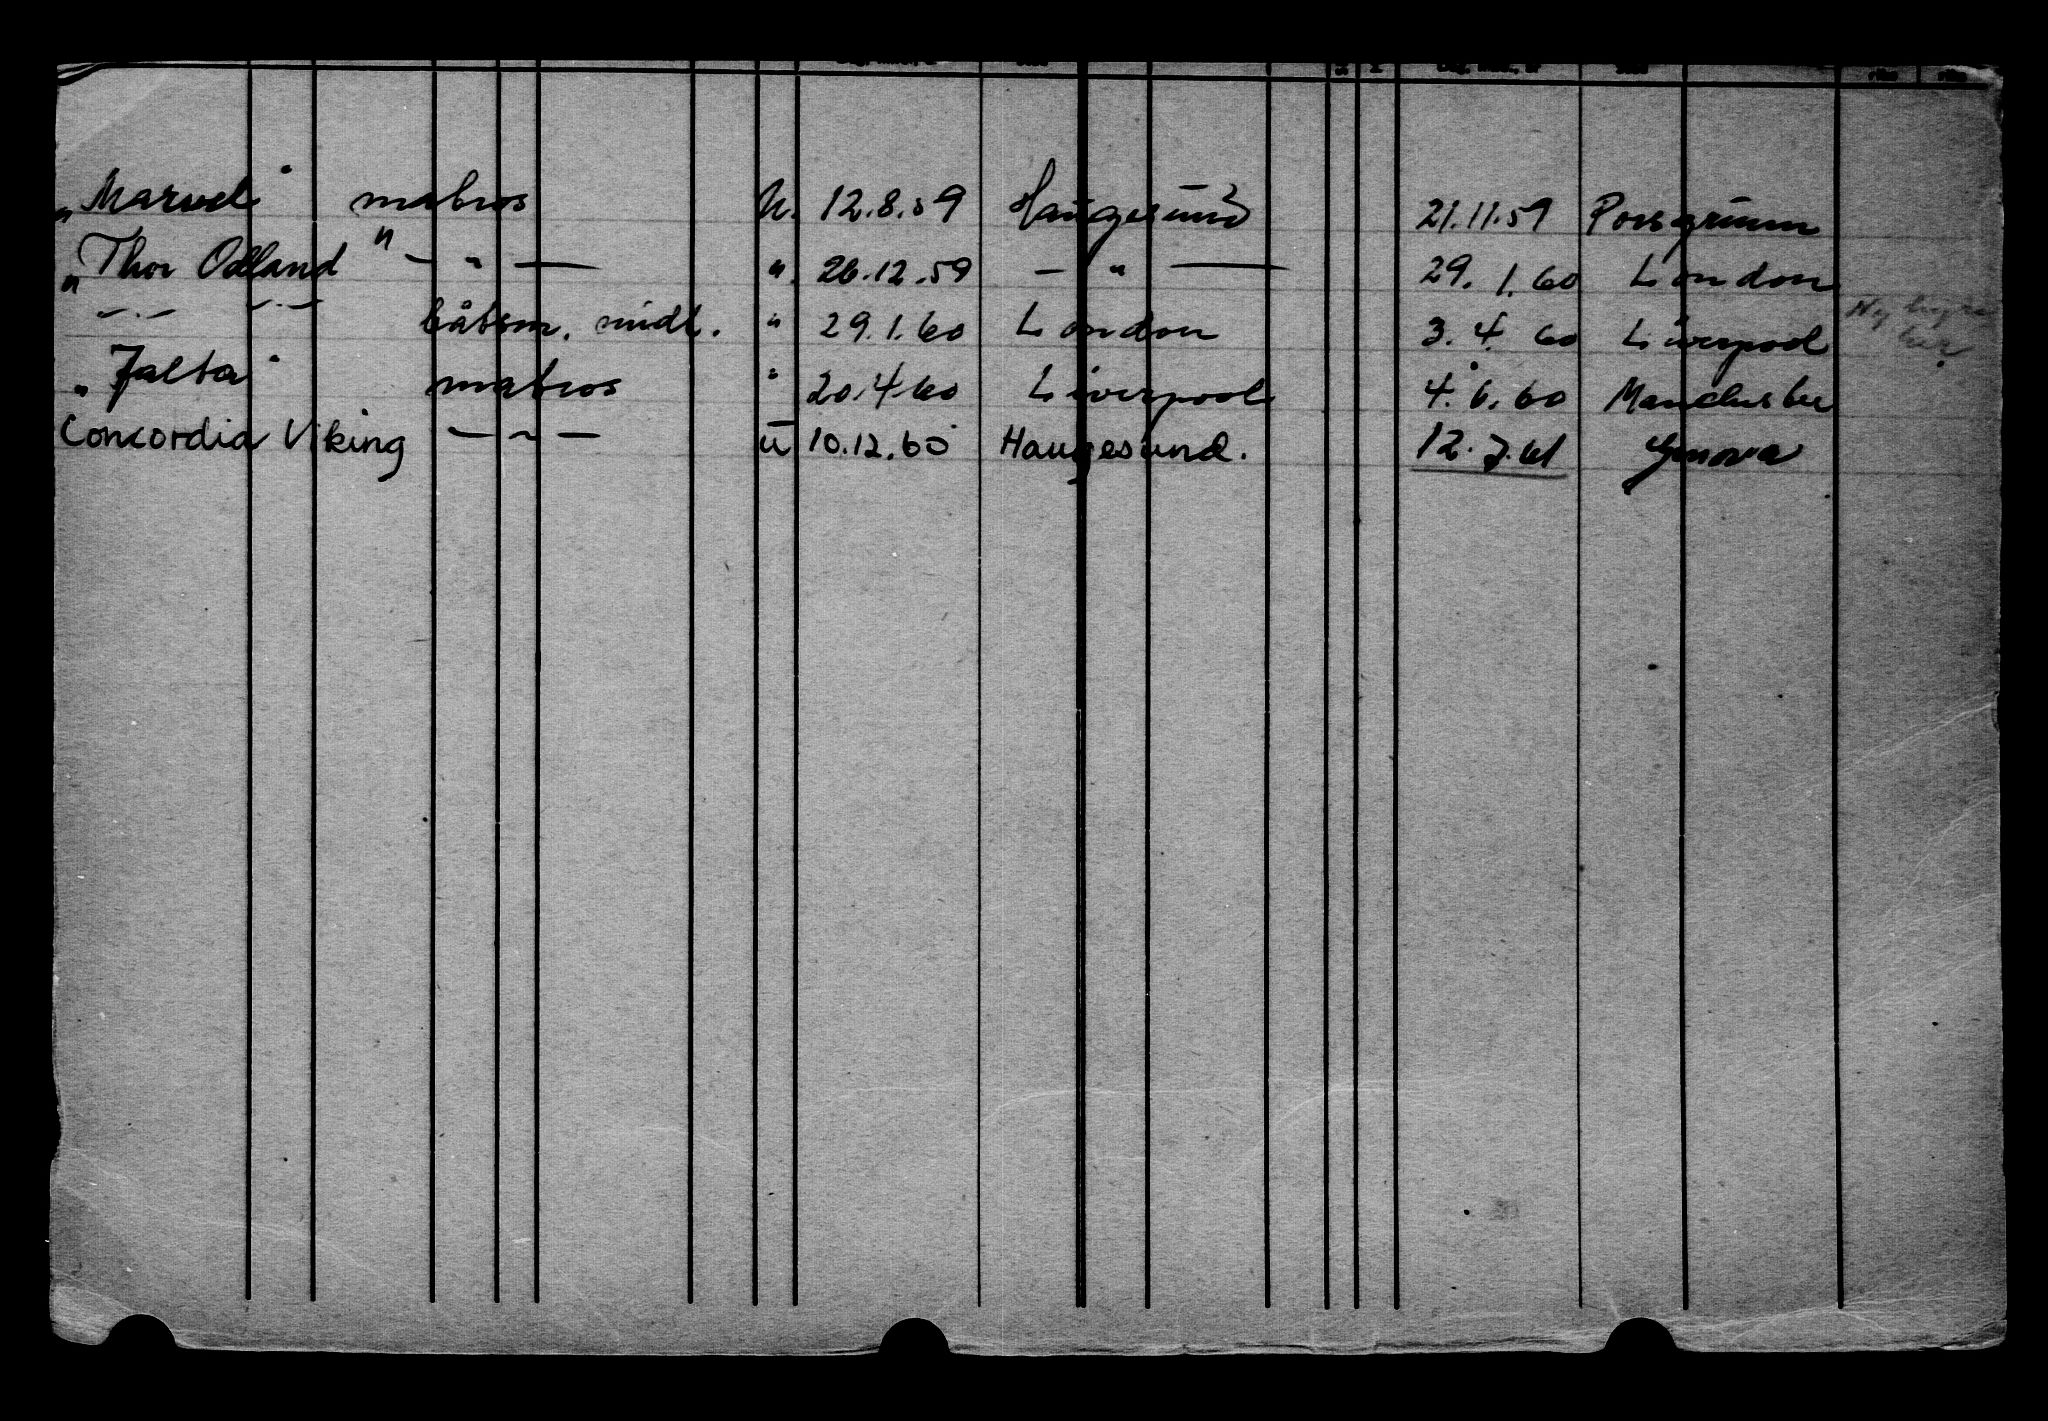 „Marvel" matros u. 12.8.59 Haugesund 21.11.59 Porsgrunn
„Thor Odland" — " — ". 26.12.59 — " — 29.1.60 London
—.— —.— båtsm. midl. " 29.1.60 London 3.4.60 Liverpool Ny hyre her
„Jalta" matros " 20.4.60 Liverpool 4.6.60 Manchester
Concordia Viking — ~ — u 10.12.60 Haugesund. 12.7.61 Genova